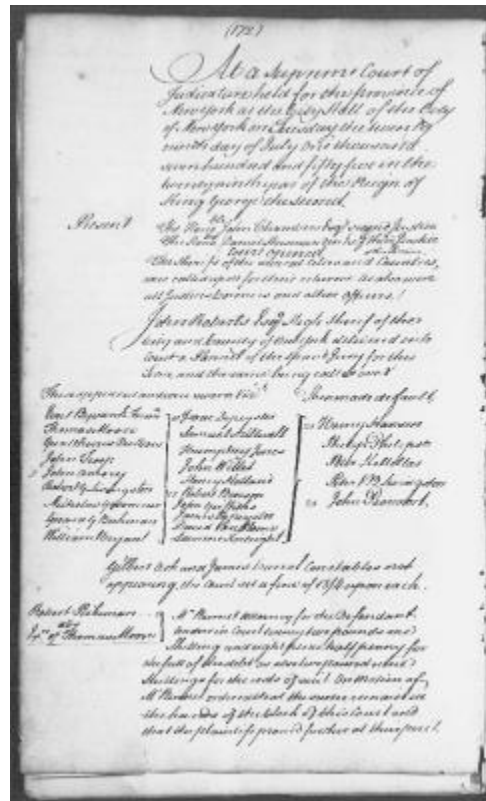 (172)
At a Supreme Court of
Judicature held for the province of
New York at the City Hall of the City
of New York on Tuesday the twenty
ninth day of July One thousand
seven hundred and fifty five in the
twenty ninth year of the Reign of
King George the second.
Present
The Honble John Chambers Esqr second Justice
The Honble Daniel Horsmanden
Court opened
The Sheriffs of the several Cities and Counties,
are called upon for their returns. As also were
all Justices Coroners and other officers.
John Roberts Esqr High Sherif of the
City and County of New York delivered into
Court a Pannel of the Grand Jury for this
Term, and the same being called over
These appeared and were sworn Viz
These made default.
Thomas Moore
John Troup
Robert G Livingston
William Bryant
Samuel
Humphrey Jones
John Willet
Henry Holland
Robert Benson
John Griffiths
David Van Horne
Lawrence Kortright
Henry Hansen
Philip Philipse
Peter Kettletas
Peter V B Livingston
John
Gilbert Ash and James Constables not
appearing, the Court set a fine of 13/4 upon each.
Robert
als
of Thomas Moore
Mr attorney for the Defendant
tenders in Court twenty two pounds one
Shilling and eight pence half penny for
the full of the debt as also two pounds
Shillings for the costs of suit On Motion of
Mr ordered that the same remain in
the hands of the Clerk of this Court and
that the plaintif proceed further at the peril.